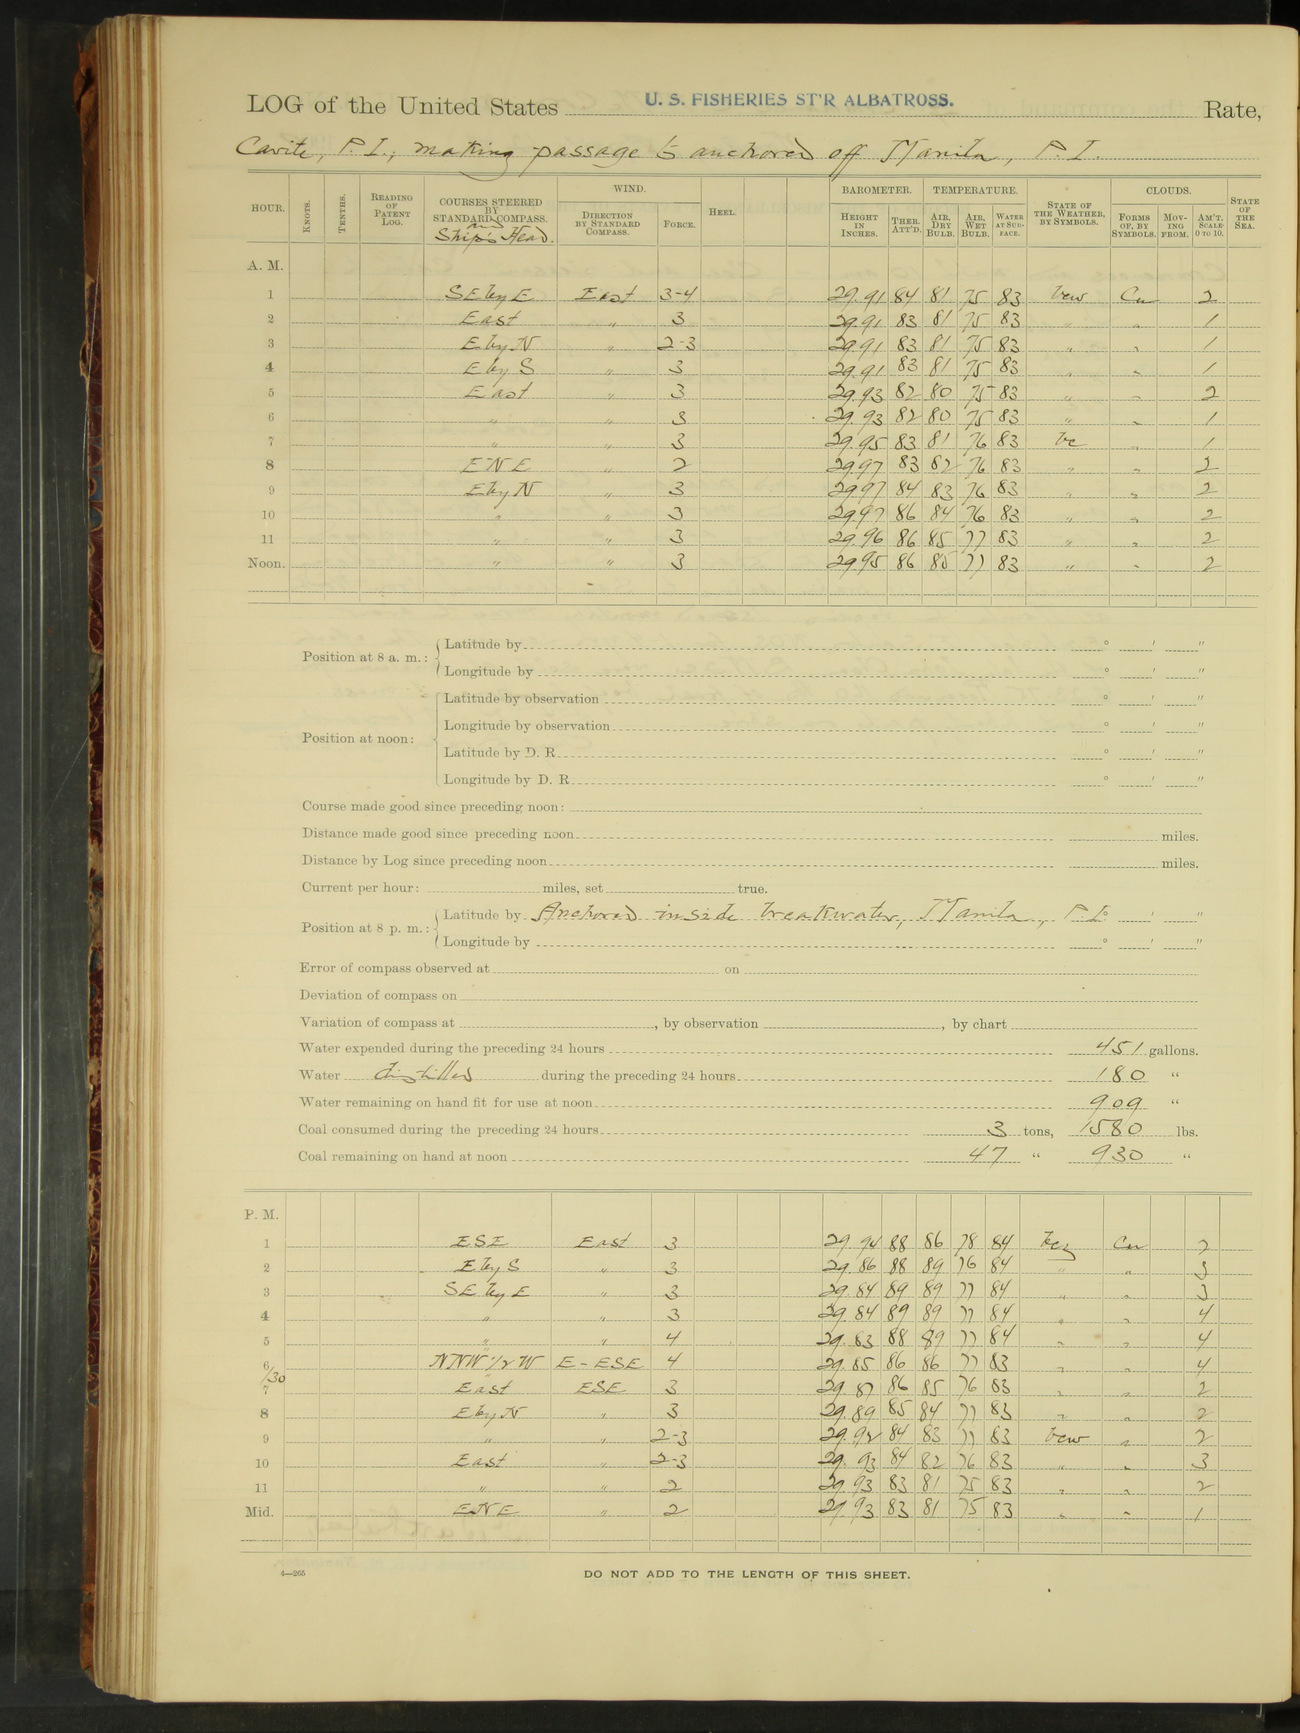 LOG of the United States U. S. FISHERIES ST'R ALBATROSS. Rate,
Cavite, P. I., making passage to anchored off Manila, P. I.
HOUR. KNOTS. TENTHS. READING OF PATENT LOG. COURSES STEERED BY STANDARD COMPASS. and Ship's Head. WIND. DIRECTION BY STANDARD COMPASS. FORCE. HEEL. BAROMETER. HEIGHT IN INCHES. THER. ATT'D. TEMPERATURE. AIR, DRY BULB. AIR, WET BULB. WATER AT SURFACE. STATE OF THE WEATHER, BY SYMBOLS. CLOUDS. FORMS OF, BY SYMBOLS. MOVING FROM. AM'T. SCALE 0 TO 10. STATE OF THE SEA.
A. M.
1 SE by E East 3-4 29.91 84 81 75 83 bcw Cu 2
2 East " 3 29.91 83 81 75 83 " " 1
3 E by N " 2-3 29.91 83 81 75 83 " " 1
4 E by S " 3 29.91 83 81 75 83 " " 1
5 East " 3 29.93 82 80 75 83 " " 2
6 " " 3 29.93 82 80 75 83 " " 1
7 " " 3 29.95 83 81 76 83 bc " 1
8 ENE " 2 29.97 83 82 76 83 " " 2
9 E by N " 3 29.97 84 83 76 83 " " 2
10 " " 3 29.97 86 84 76 83 " " 2
11 " " 3 29.96 86 85 77 83 " " 2
Noon. " " 3 29.95 86 85 77 83 " " 2
Position at 8 a. m.: Latitude by ° ′ ″
Longitude by ° ′ ″
Position at noon: Latitude by observation ° ′ ″
Longitude by observation ° ′ ″
Latitude by D. R. ° ′ ″
Longitude by D. R. ° ′ ″
Course made good since preceding noon:
Distance made good since preceding noon miles.
Distance by Log since preceding noon miles.
Current per hour: miles, set true.
Position at 8 p. m.: Latitude by Anchored inside breakwater, Manila, P. I. ° ′ ″
Longitude by ° ′ ″
Error of compass observed at on
Deviation of compass on
Variation of compass at , by observation , by chart
Water expended during the preceding 24 hours 451 gallons.
Water distilled during the preceding 24 hours 180 "
Water remaining on hand fit for use at noon 909 "
Coal consumed during the preceding 24 hours 3 tons, 1580 lbs.
Coal remaining on hand at noon 47 " 930 "
P. M.
1 ESE East 3 29.94 88 86 78 84 bcz Cu 2
2 E by S " 3 29.86 88 89 76 84 " " 3
3 SE by E " 3 29.84 89 89 77 84 " " 3
4 " " 3 29.84 89 89 77 84 " " 4
5 " " 4 29.83 88 89 77 84 " " 4
6 NNW 1/2 W E-ESE 4 29.85 86 86 77 83 " " 4
/30
7 East ESE 3 29.87 86 85 76 83 " " 2
8 E by N " 3 29.89 85 84 77 83 " " 2
9 " " 2-3 29.92 84 83 77 83 bcw " 2
10 East " 2-3 29.93 84 82 76 83 " " 3
11 " " 2 29.93 83 81 75 83 " " 2
Mid. ENE " 2 29.93 83 81 75 83 " " 1
4—265
DO NOT ADD TO THE LENGTH OF THIS SHEET.